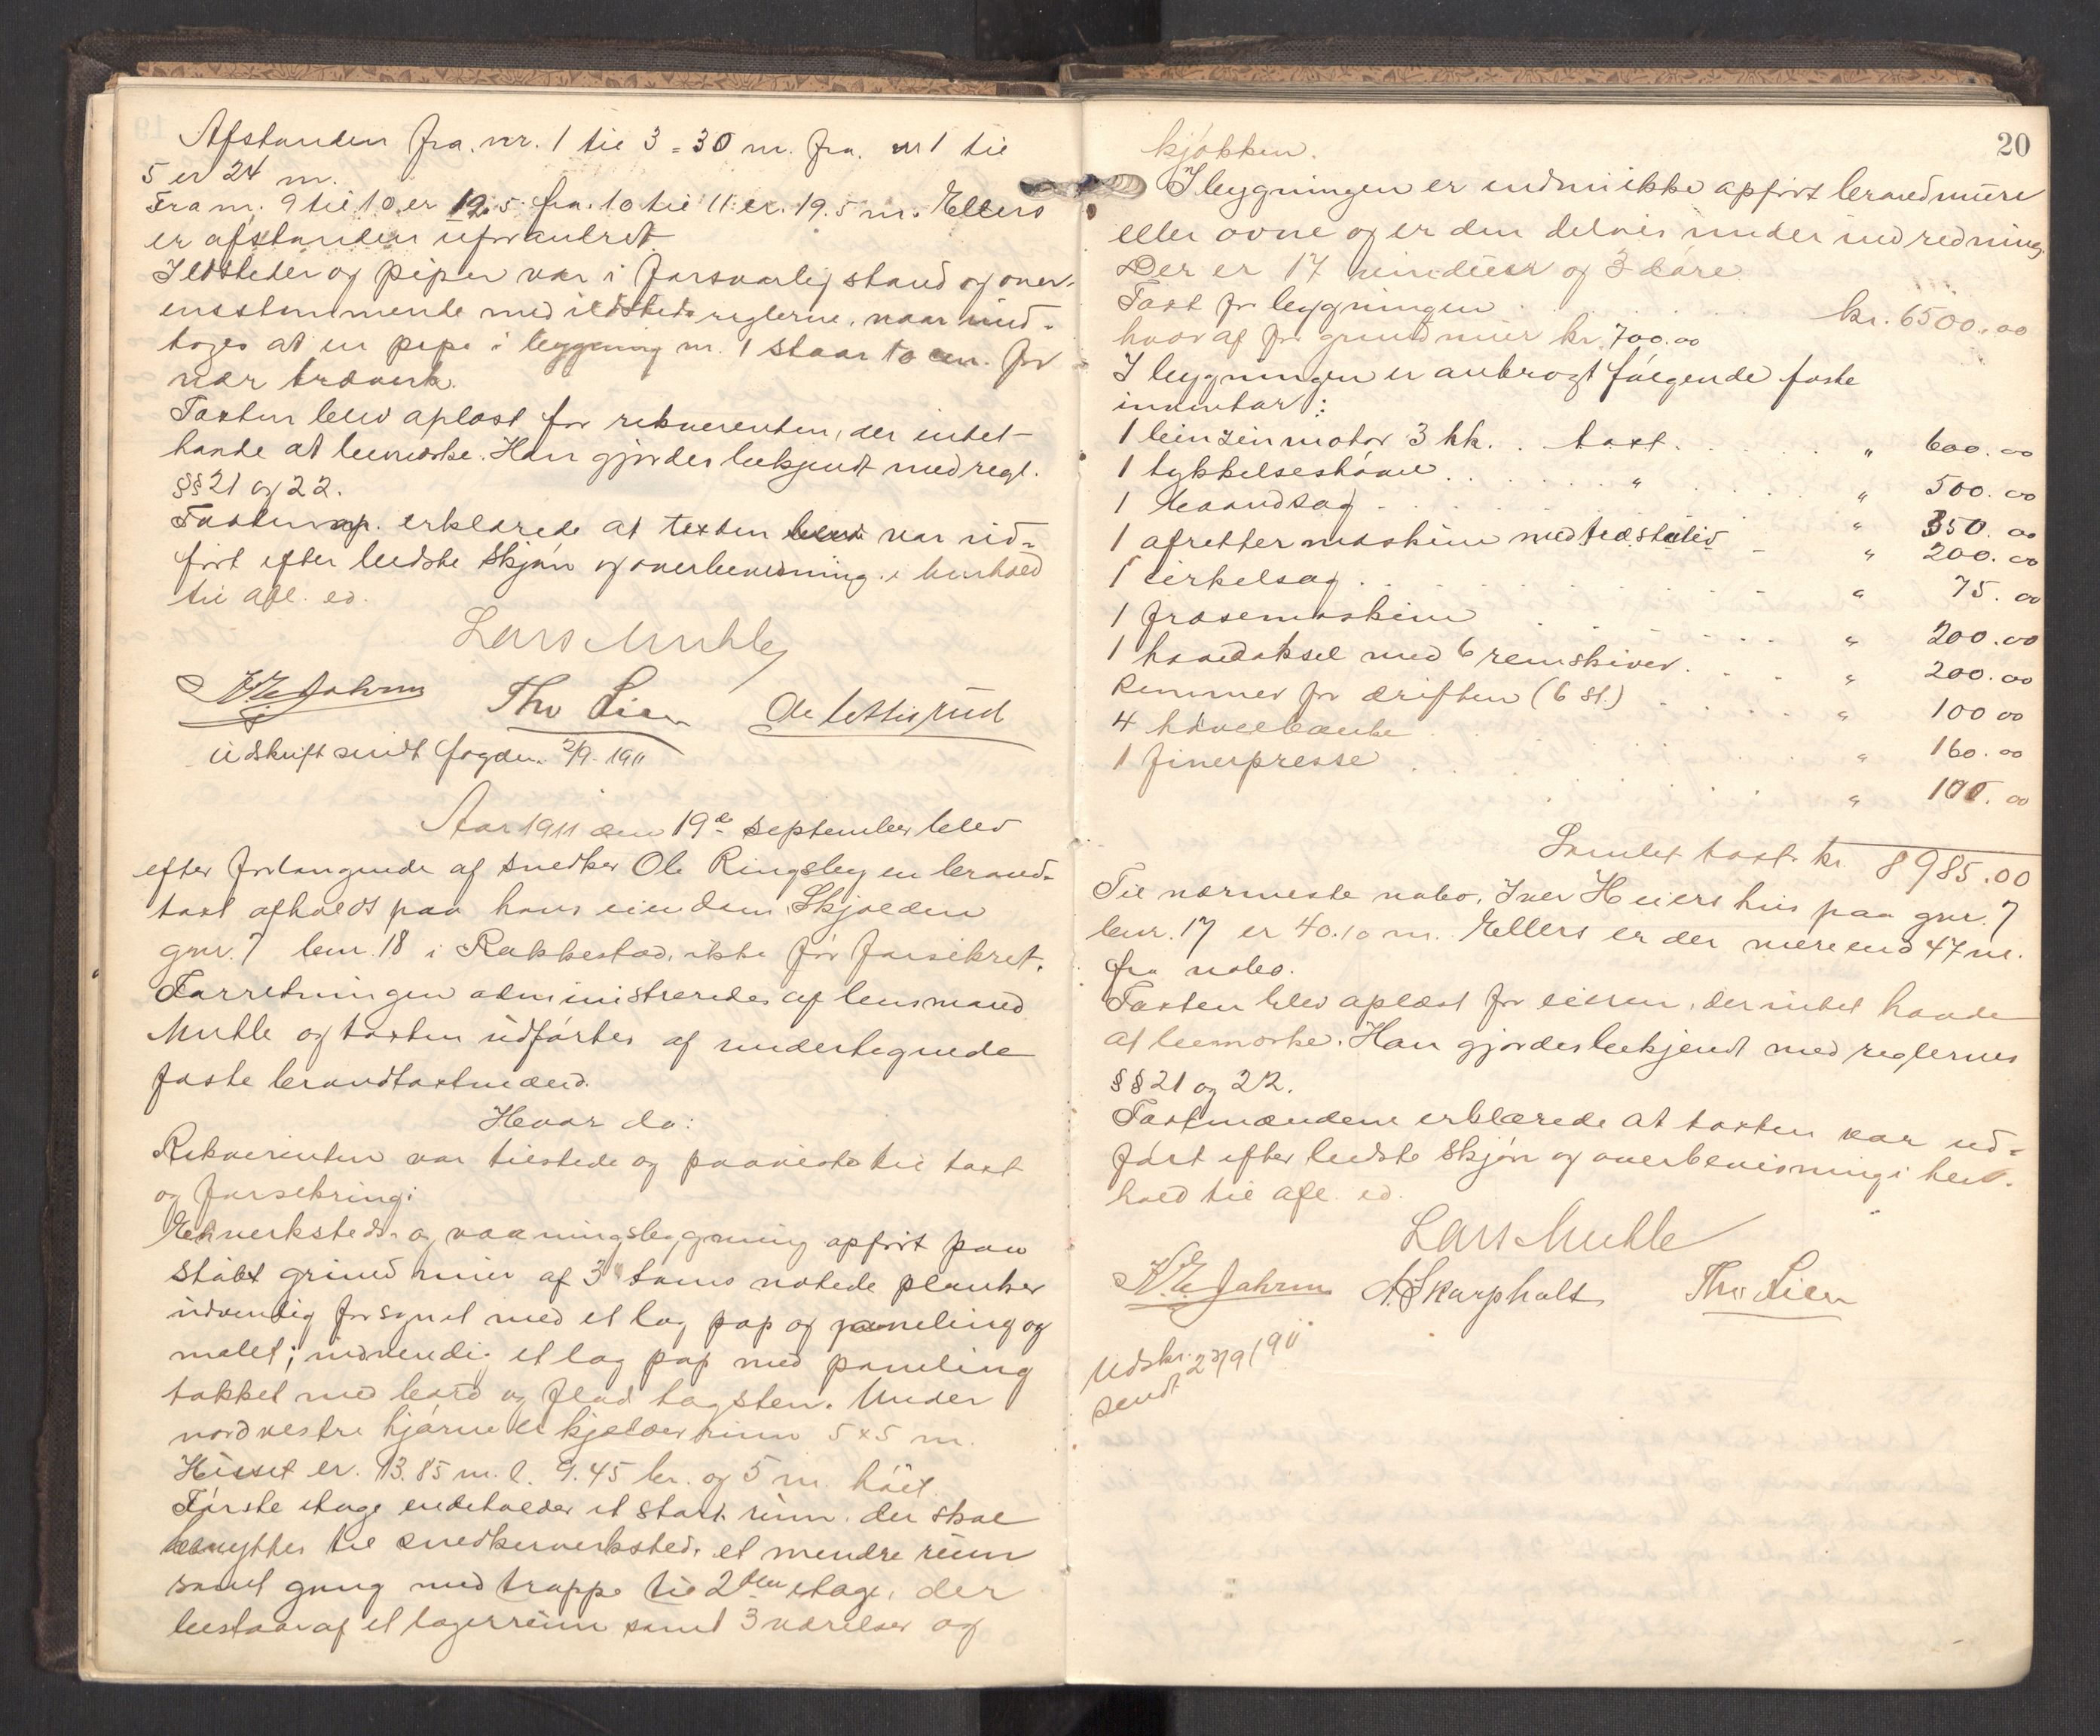 Afstanden fra nr. 1 til 3 = 30 m. fra nr 1 til
5 er 24 m.
Fra nr. 9 til 10 er 12.5 fra 10 til 11 er 19.5 m. Ellers
er afstanden uforandret
Ildsteder og piper var i forsvarlig stand og over-
ensstemmende med ildstedsreglerne, naar und-
toges at en pipe i bygning nr. 1 staar 10 cm. for
nær træverk.
Taxten blev oplæst for rekvirenten, der intet
havde at bemerke. Han gjordes bekjendt med regl.
§§ 21 og 22.
Taxtmp. erklærede at taxten var ud-
ført efter bedste skjøn og overbevisning i henhold
til afl. ed.
Lars Muhle
Tho Lien
Udskrift sendt fogden 2/9 1911
Aar 1911 den 19de september blev
efter forlangende af snedker Ole Ringsby en brand-
taxt afholdt paa hans eiendom Skjolden
gnr. 7 bnr. 18 i Rakkestad, ikke før forsikret.
Forretningen administreredes af lensmand
Muhle og taxten udførtes af undertegnede
faste brandtaxtmænd.
Hvor da:
Rekvirenten var tilstede og paaviste til taxt
og forsikring:
En verksteds- og vaaningsbygning opført paa
støbt grundmur af 3" toms notede planker
udvendig forsynet med et lag pap og paneling og
malet; indvendig et lag pap med paneling
takket med bord og flad tagsten. Under
nordvestre hjørne et kjælderrum 5 x 5 m.
Huset er 13.85 m. l. 9.45 br. og 5 m. høit.
Første etage indeholder et stort rum der skal
benyttes til snedkerverksted, et mindre rum
samt gang med trappe til 2den etage, der
bestaar af et lagerrum samt 3 værelser og
20
kjøkken.
I bygningen er endnu ikke opført brandmure
eller ovne og er den delvis under indredning.
Der er 17 vinduer og 3 døre
Taxt for bygningen . . . kr. 6500.00
hvoraf for grundmur kr. 700.00
I bygningen er anbragt følgende faste
inventar:
1 benzinmotor 3 hk. . taxt. . . . " 600.00
1 tykkelseshøvel . . . " . . . " 500.00
1 baandsag . . . " 350.00
1 afrettermaskine med træstativ - " 200.00
1 cirkelsag . . . " 75.00
1 fræsemaskine . . . " 200.00
1 hovedaksel med 6 remskiver . . . " 200.00
Remmer for driften (6 st.) . . . " 100 00
4 høvelbænke . . . " 160.00
1 finerpresse . . . " 100.00
Samlet taxt kr. 8985.00
Til nærmeste nabo, Iver Heiers hus paa gnr. 7
bnr. 17 er 40.10 m. Ellers er der mere end 47 m.
fra nabo.
Taxten blev oplæst for eieren, der intet havde
at bemerke. Han gjordes bekjendt med reglernes
§§ 21 og 22.
Taxtmændene erklærede at taxten var ud-
ført efter bedste skjøn og overbevisning i hen-
hold til afl. ed.
Lars Muhle
A. Skarpholt Tho Lien
Udskr.
sendt 27/9 1911